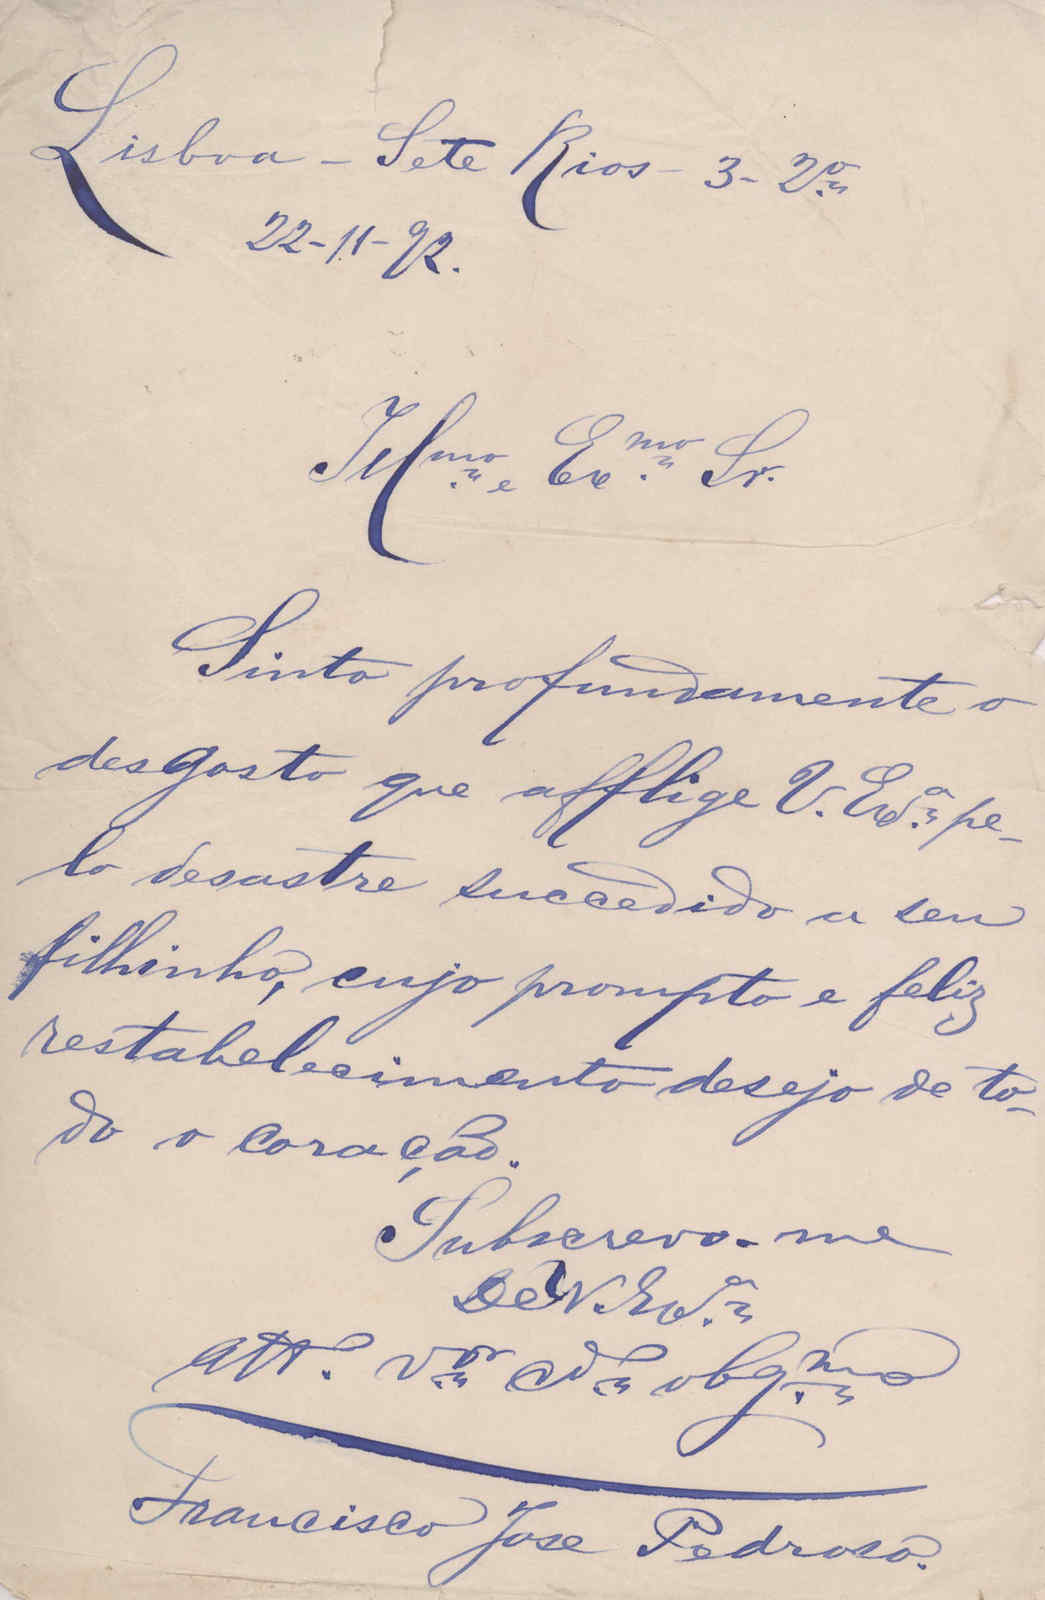 Lisboa - Sete Rios - 3 - 2º
22-11-92.
Illmo e Exmo Sr.
Sinto profundamente o
desgosto que afflige V. Exa pe-
lo desastre succedido a seu
filhinho, cujo prompto e feliz
restabelecimento desejo de to-
do o coração.
Subscrevo-me
De V. Exa
Attº. vor cdº obgmo
Francisco José Pedroso.